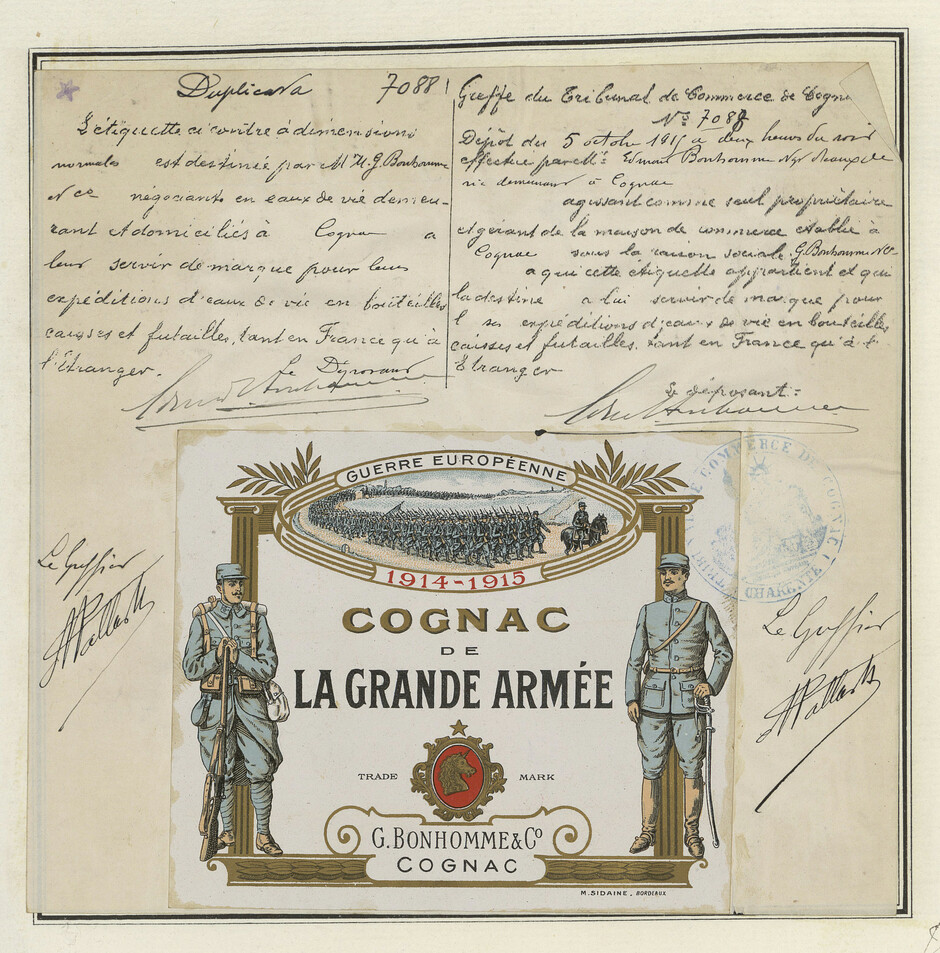 Duplicata 7088
L'étiquette ci contre à dimensions
normales est destinée par M G. Bonhomme
négociants en eaux de vie demeu-
rant et domiciliés à Cognac a
leur servir de marque pour leurs
expéditions d'eaux de vie en bouteilles
caisses et futailles, tant en France qu'à
l'Etranger.
Le Déposant
Greffe du Tribunal de Commerce de Cognac
No 7088
Dépôt du 5 octobre 1915 a deux heures du soir
effectué par M. Edmond Bonhomme Ngt eaux de
vie demeurant à Cognac
agissant comme seul propriétaire
et gérant de la maison de commerce établie à
Cognac sous la raison sociale G. Bonhomme & Co
a qui cette étiquette appartient et qui
la destine a lui servir de marque pour
ses expéditions d'eaux de vie en bouteilles
caisses et futailles, tant en France qu'à l'
Etranger
Le déposant :
GUERRE EUROPÉENNE
1914-1915
COGNAC
DE
LA GRANDE ARMÉE
TRADE MARK
G. BONHOMME & Co
COGNAC
M. SIDAINE, BORDEAUX
TRIBUNAL DE COMMERCE DE COGNAC
CHARENTE
Le Greffier
Le Greffier